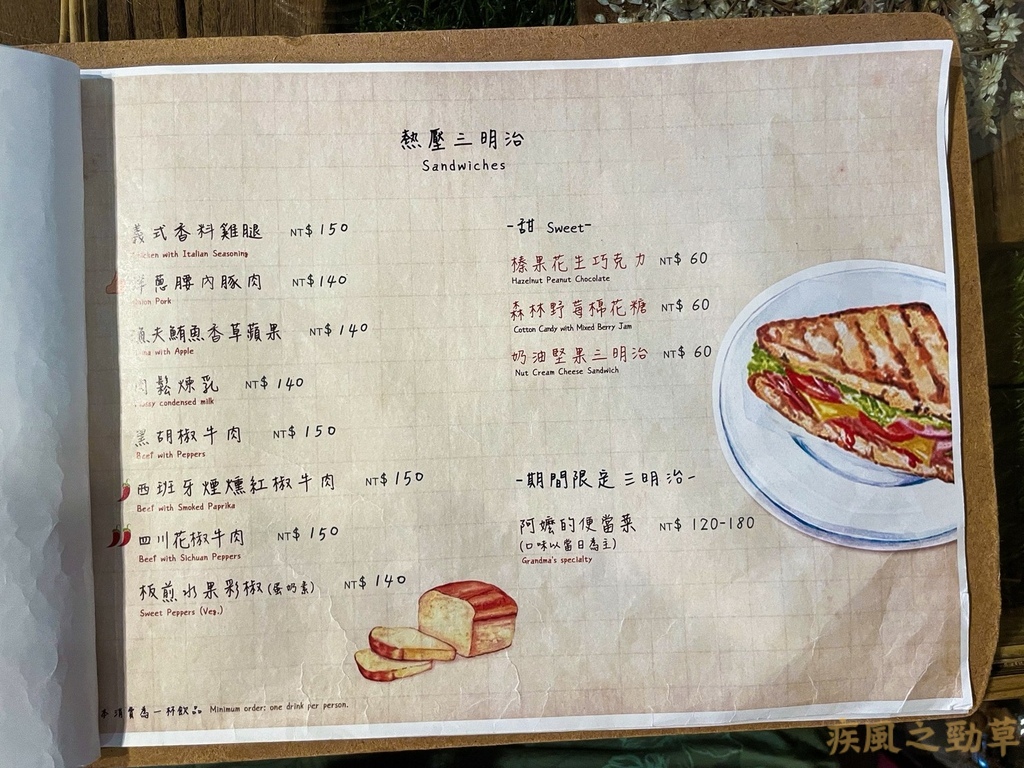 熱壓三明治
Sandwiches
義式香料雞腿 NT$ 150
with Italian Seasoning
洋蔥腰內豚肉 NT$ 140
Pork
漁夫鮪魚香草蘋果 NT$ 140
with Apple
肉鬆煉乳 NT$ 140
condensed milk
黑胡椒牛肉 NT$ 150
Beef with Peppers
西班牙煙燻紅椒牛肉 NT$ 150
Beef with Smoked Paprika
四川花椒牛肉 NT$ 150
Beef with Sichuan Peppers
板煎水果彩椒(蛋奶素) NT$ 140
Sweet Peppers (Veg.)
消費為一杯飲品 Minimum order: one drink per person.
-甜 Sweet-
榛果花生巧克力 NT$ 60
Hazelnut Peanut Chocolate
森林野莓棉花糖 NT$ 60
Cotton Candy with Mixed Berry Jam
奶油堅果三明治 NT$ 60
Nut Cream Cheese Sandwich
-期間限定三明治-
阿嬤的便當菜 NT$ 120-180
(口味以當日為主)
Grandma's specialty
疾風之勁草